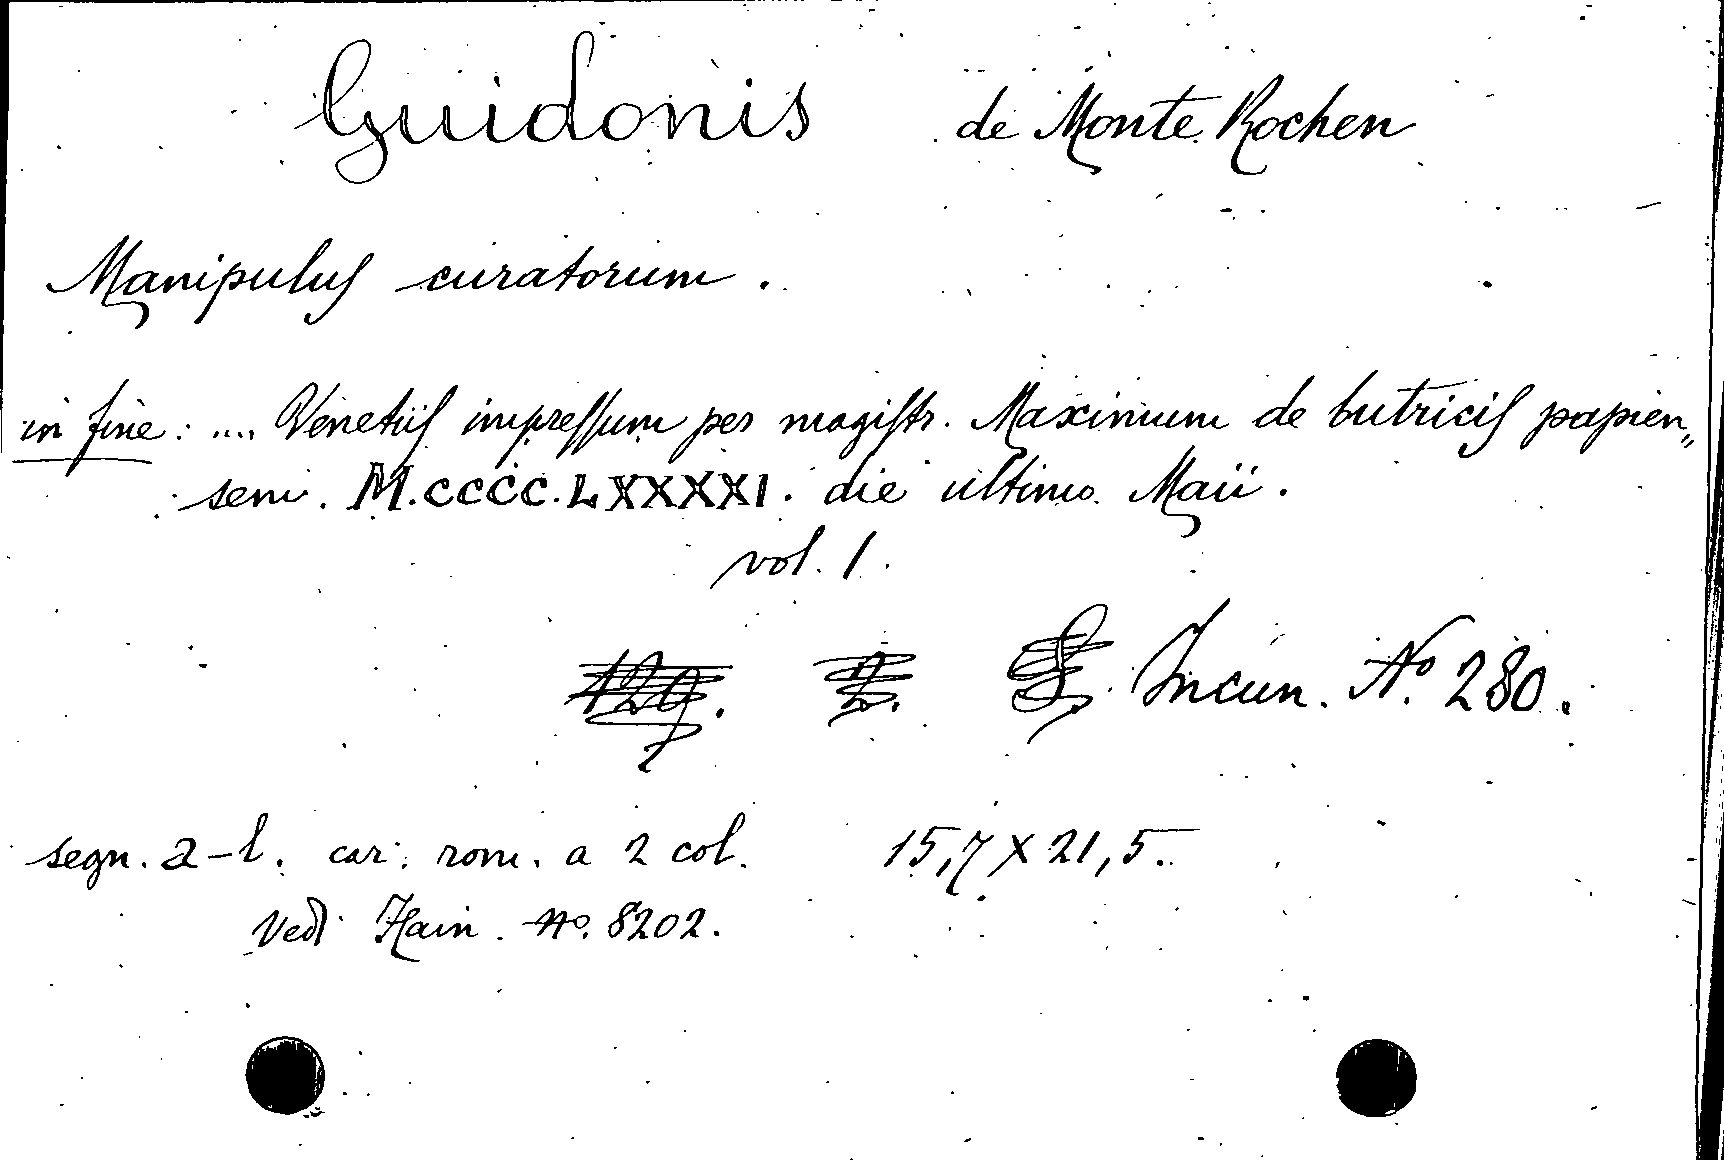 Guidonis de Monte Rochen
Manipuluſ curatorum.
in fine: .... Venetiiſ impreſſum per magiſtr. Maximum de butriciſ papien„
sem. M.CCCC.LXXXXI. die ultimo. Maii.
vol. 1.
129. 2. Incun. No. 280.
segn. a-l. car. rom. a 2 col. 15,7 X 21,5.
Vedi Hain. No. 8202.